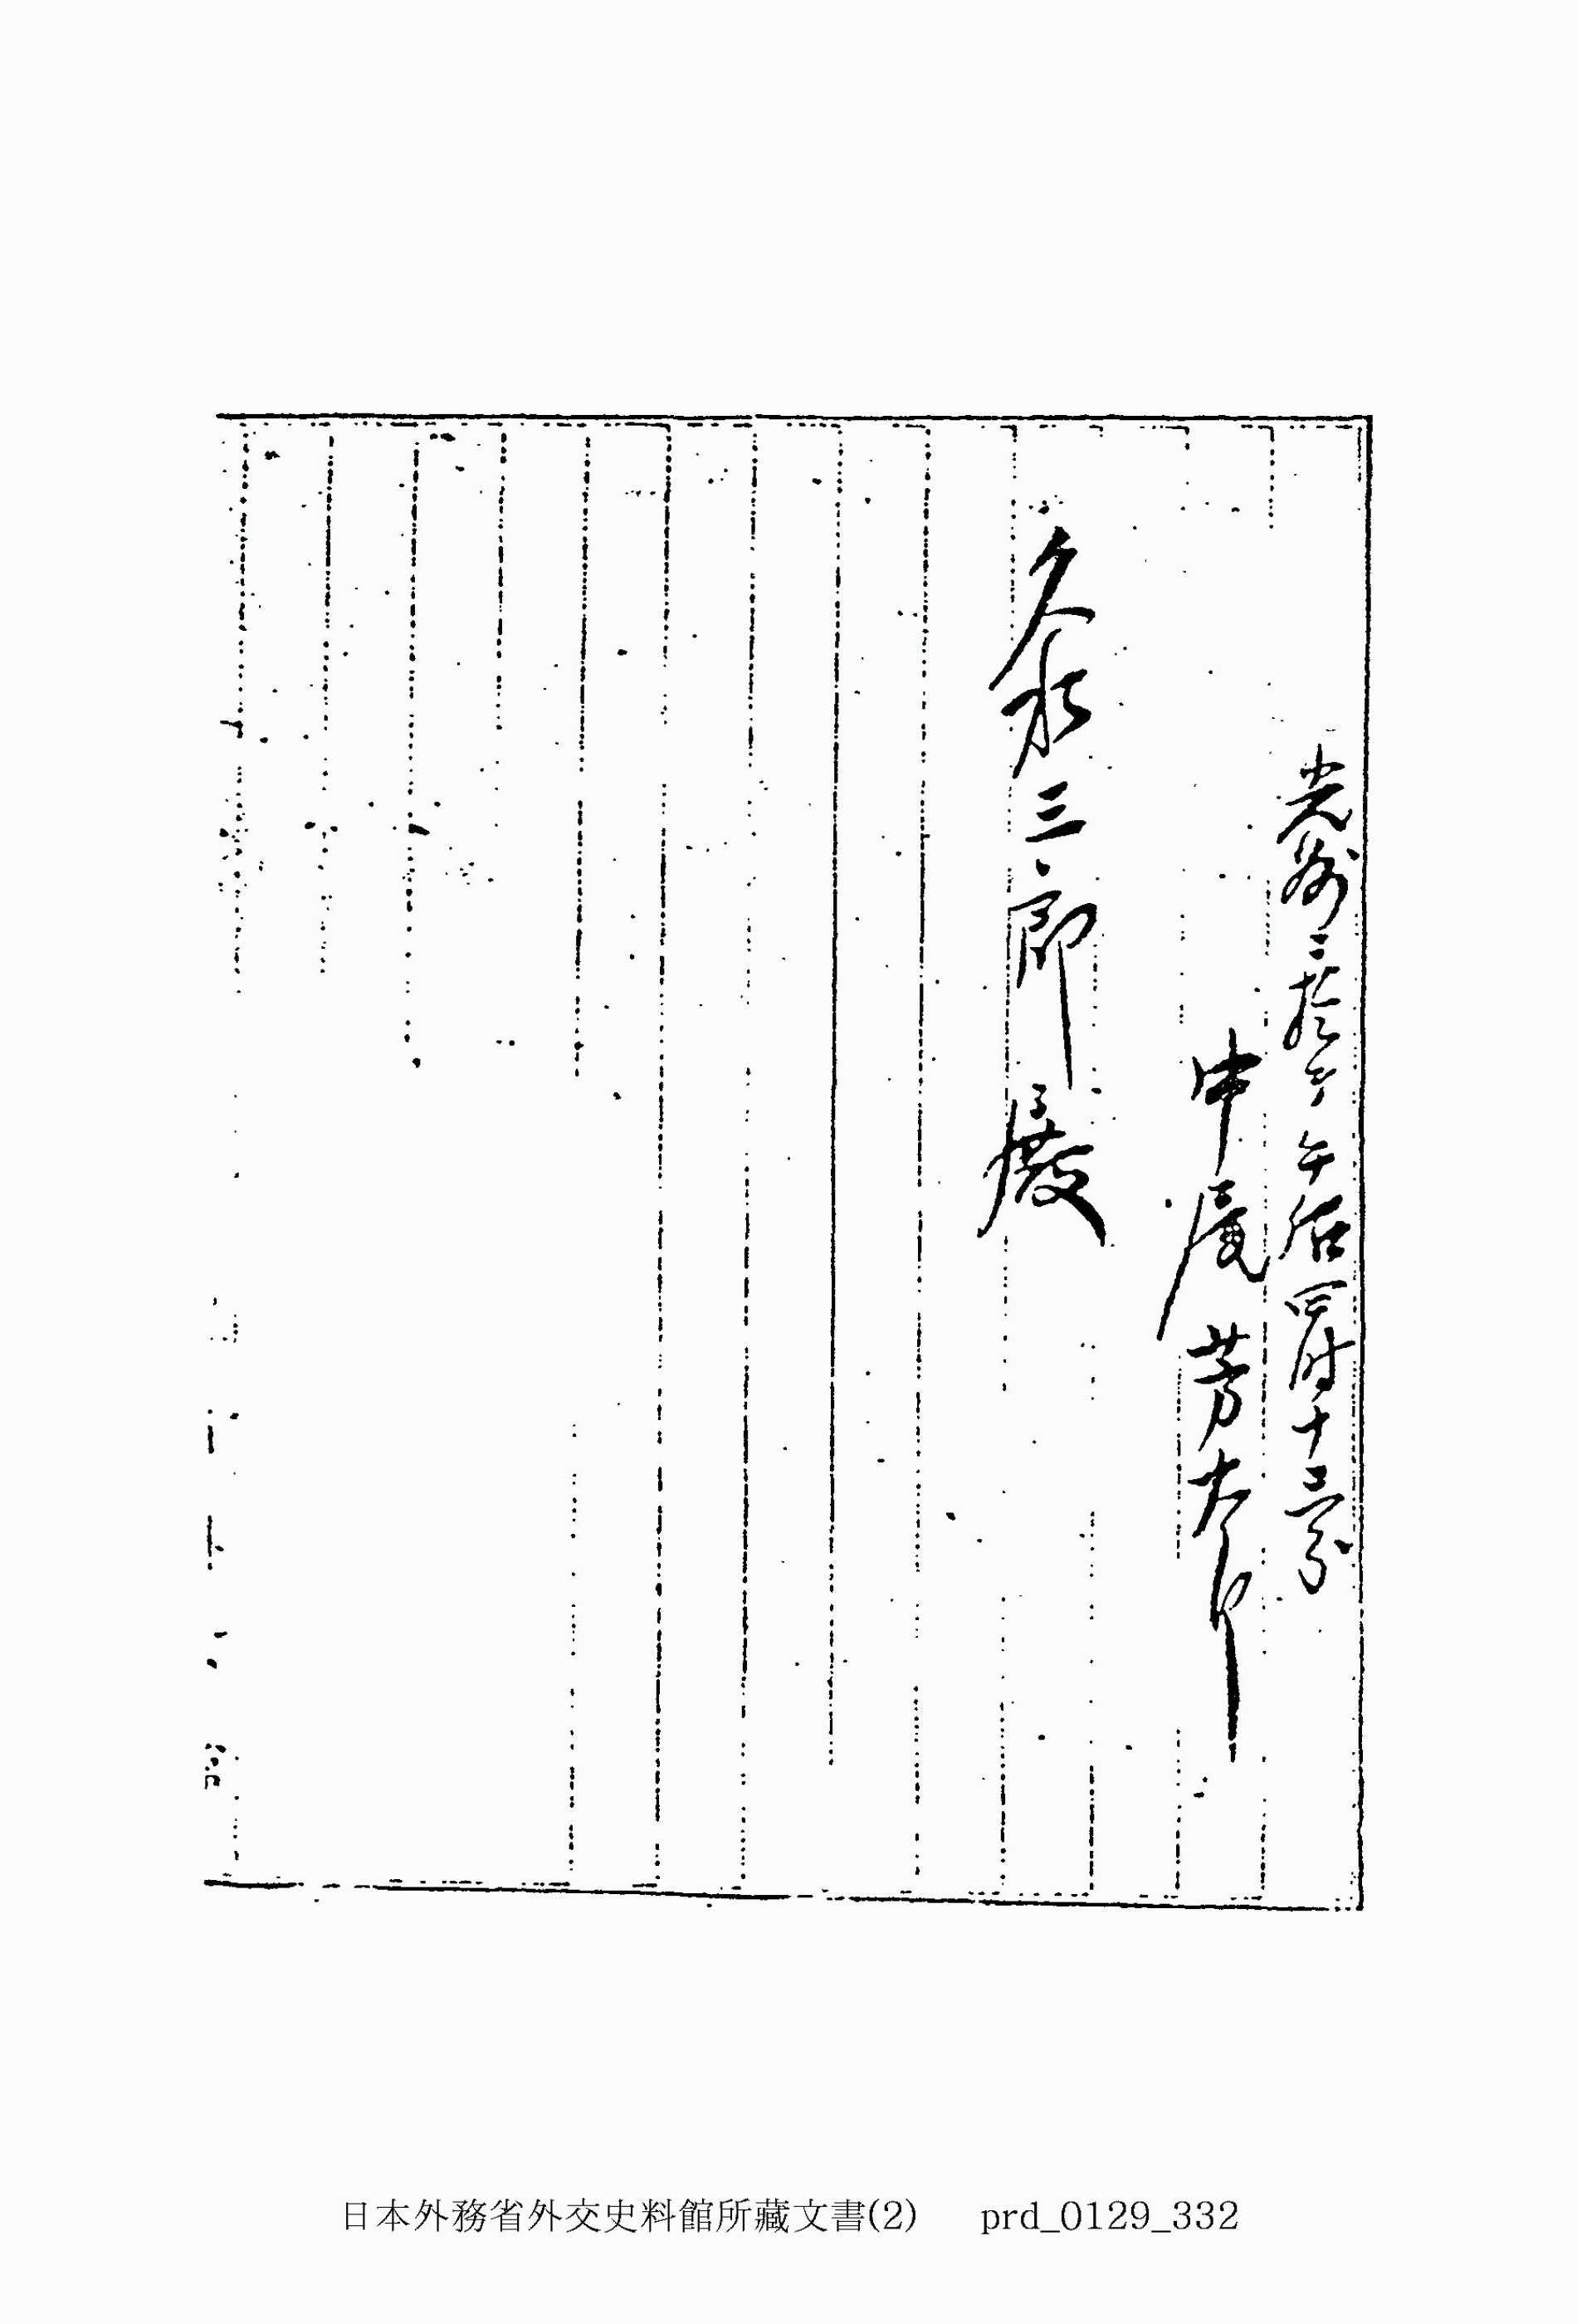 光州三拾戸 午后四時十三分
中尾芳太郎
久永三郎殿
日本外務省外交史料館所藏文書(2) prd_0129_332